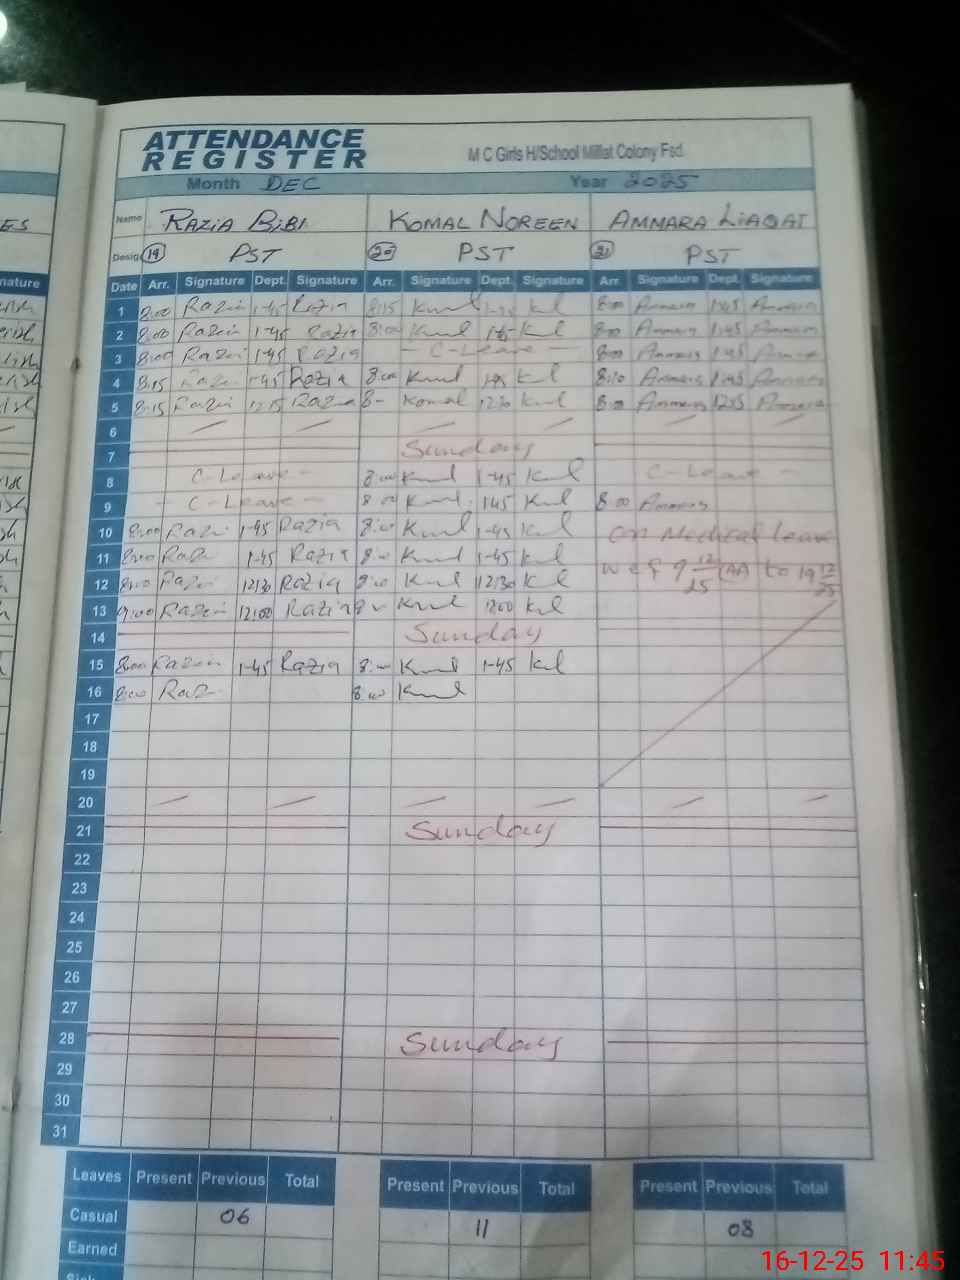 ATTENDANCE
REGISTER
M C Girls H/School Millat Colony Fsd.
Month DEC Year 2025
Name RAZIA BIBI KOMAL NOREEN AMMARA LIAQAT
Desig 19 PST 20 PST 21 PST
Date Arr. Signature Dept. Signature Arr. Signature Dept. Signature Arr. Signature Dept. Signature
1 8:00 Razia 1-45 Razia 8:15 Kml kl 8:00 Ammara 1:45 Ammara
2 8:00 Razia 1-45 Razia 8:00 Kml 1-45 Kl 8:00 Ammara 1:45 Ammara
3 8:00 Razia 1-45 Razia - C-Leave - 8:00 Ammara 1:45 Ammara
4 8:15 Razia 1-45 Razia 8:00 Kml 1:45 kl 8:10 Ammara 1:45 Ammara
5 8:15 Razia 12:15 Razia 8- Komal 12:30 Kml 8:00 Ammara Ammara
6
7 Sunday
8 C-Leave - 8:00 Kml 1-45 Kml C-Leave -
9 - C-Leave - 8:00 Kml 1:45 Kml 8:00 Ammara
10 8:00 Razia 1-45 Razia 8:00 Kml 1-45 kl on Medical leave
11 8:00 Razia 1-45 Razia 8:00 Kml 1-45 kl
12 8:00 Razia 12:30 Razia 8:00 Kml 12:30 Kl w e f 9 12/25 (AA) to 19 12/25
13 9:00 Razia 12:00 Razia Kml 12:00 Kml
14 Sunday
15 8:00 Razia 1-45 Razia 8:00 Kml 1-45 Kml
16 8:00 Raz 8:00 Kml
17
18
19
20
21 Sunday
22
23
24
25
26
27
28 Sunday
29
30
31
Leaves Present Previous Total Present Previous Total Present Previous Total
Casual 06 11 08
Earned
16-12-25 11:45